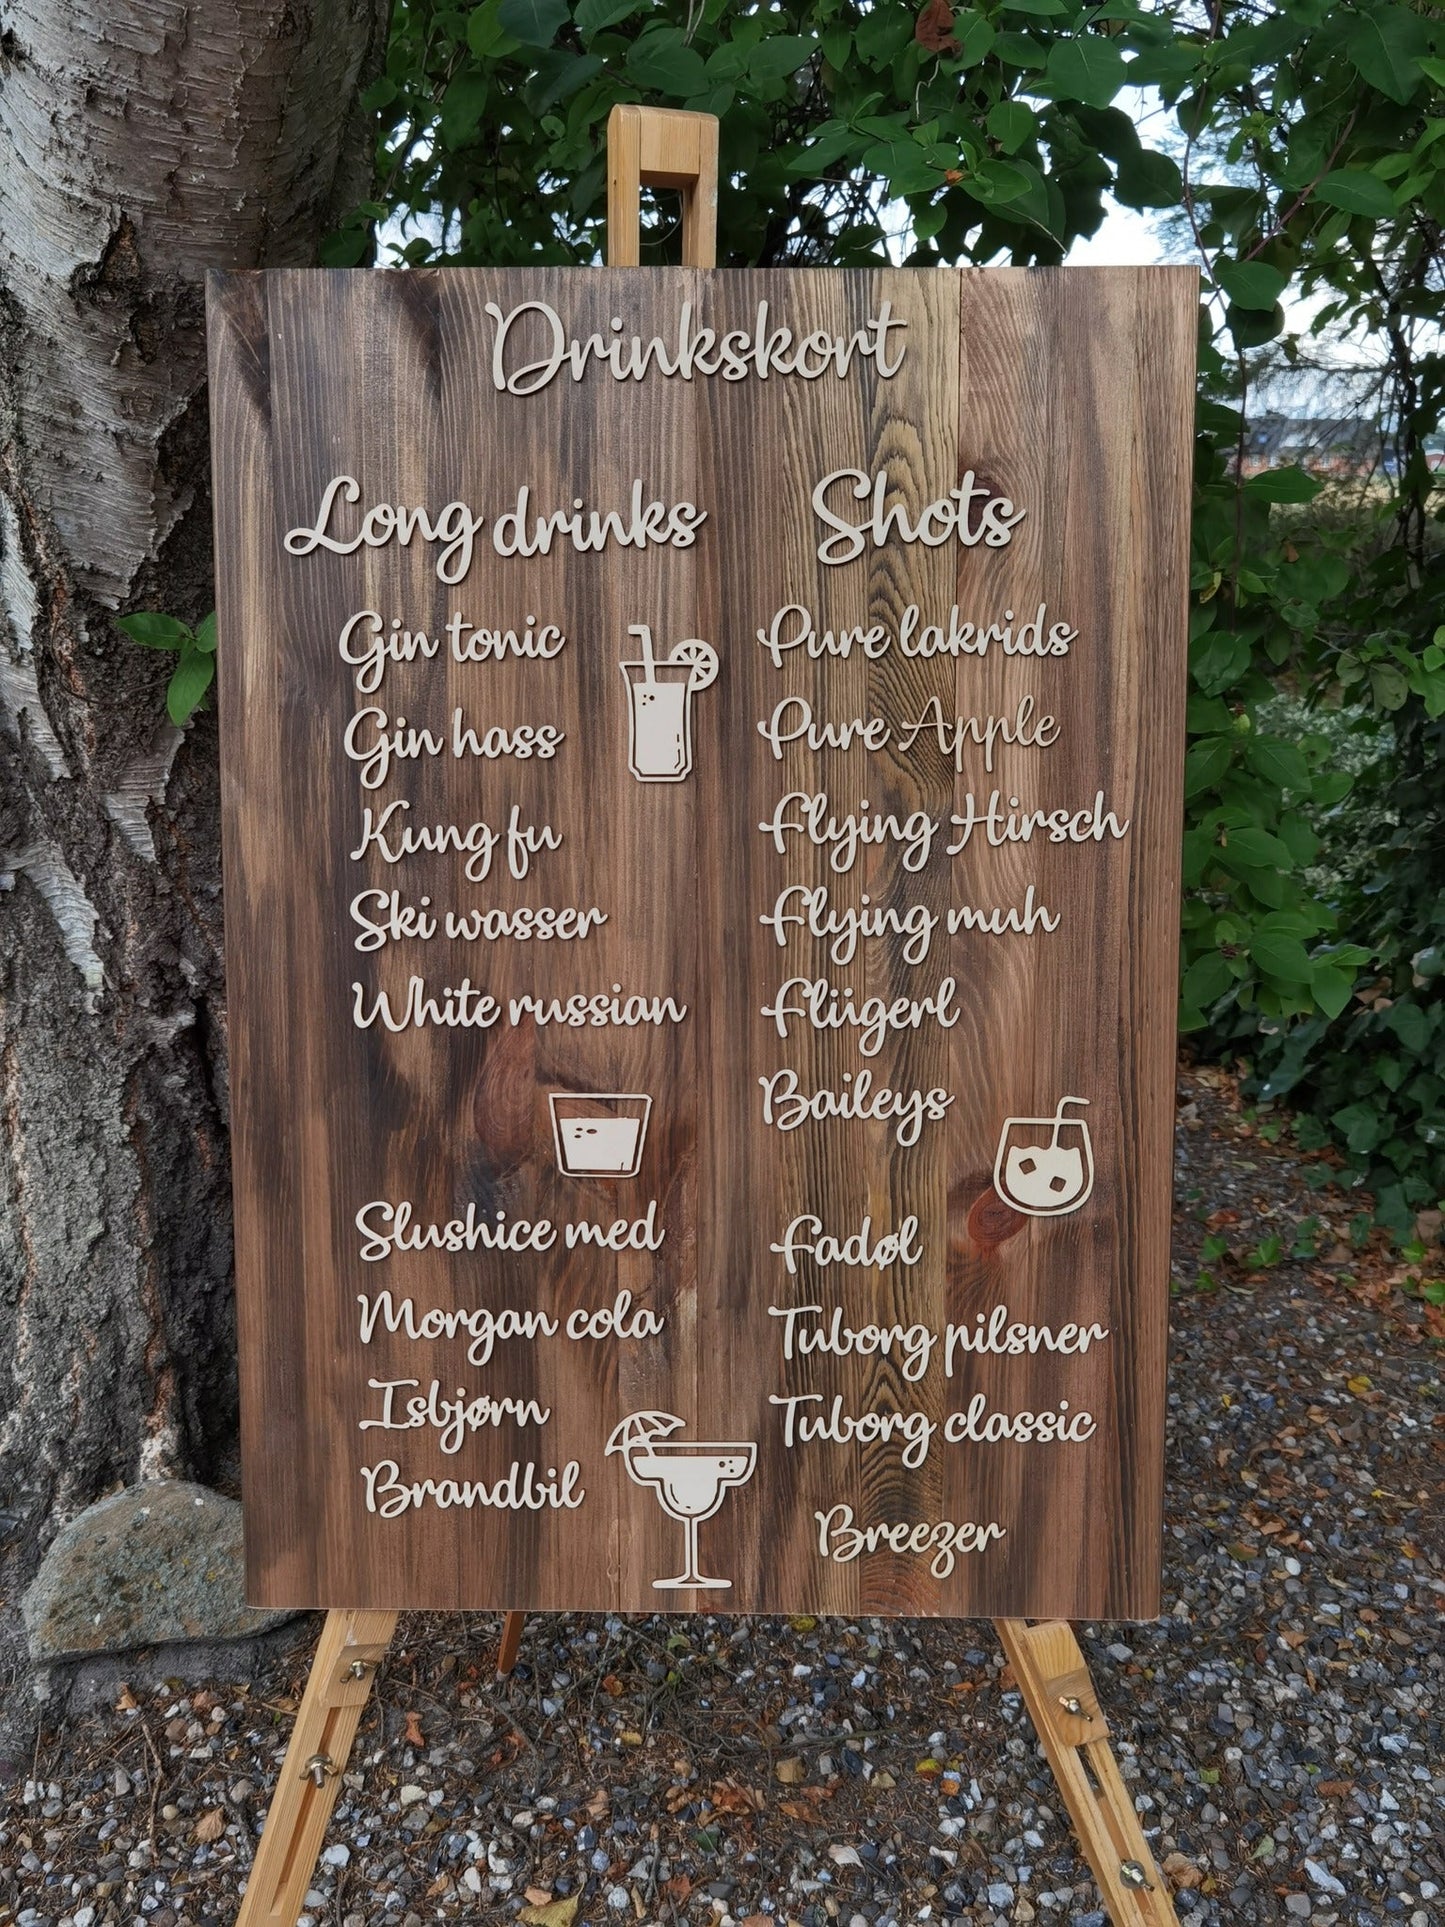 Drinkskort
Long drinks
Gin tonic
Gin hass
Kung fu
Ski wasser
White russian
Slushice med
Morgan cola
Isbjørn
Brandbil
Shots
Pure lakrids
Pure Apple
Flying Hirsch
Flying muh
Flügerl
Baileys
Fadøl
Tuborg pilsner
Tuborg classic
Breezer